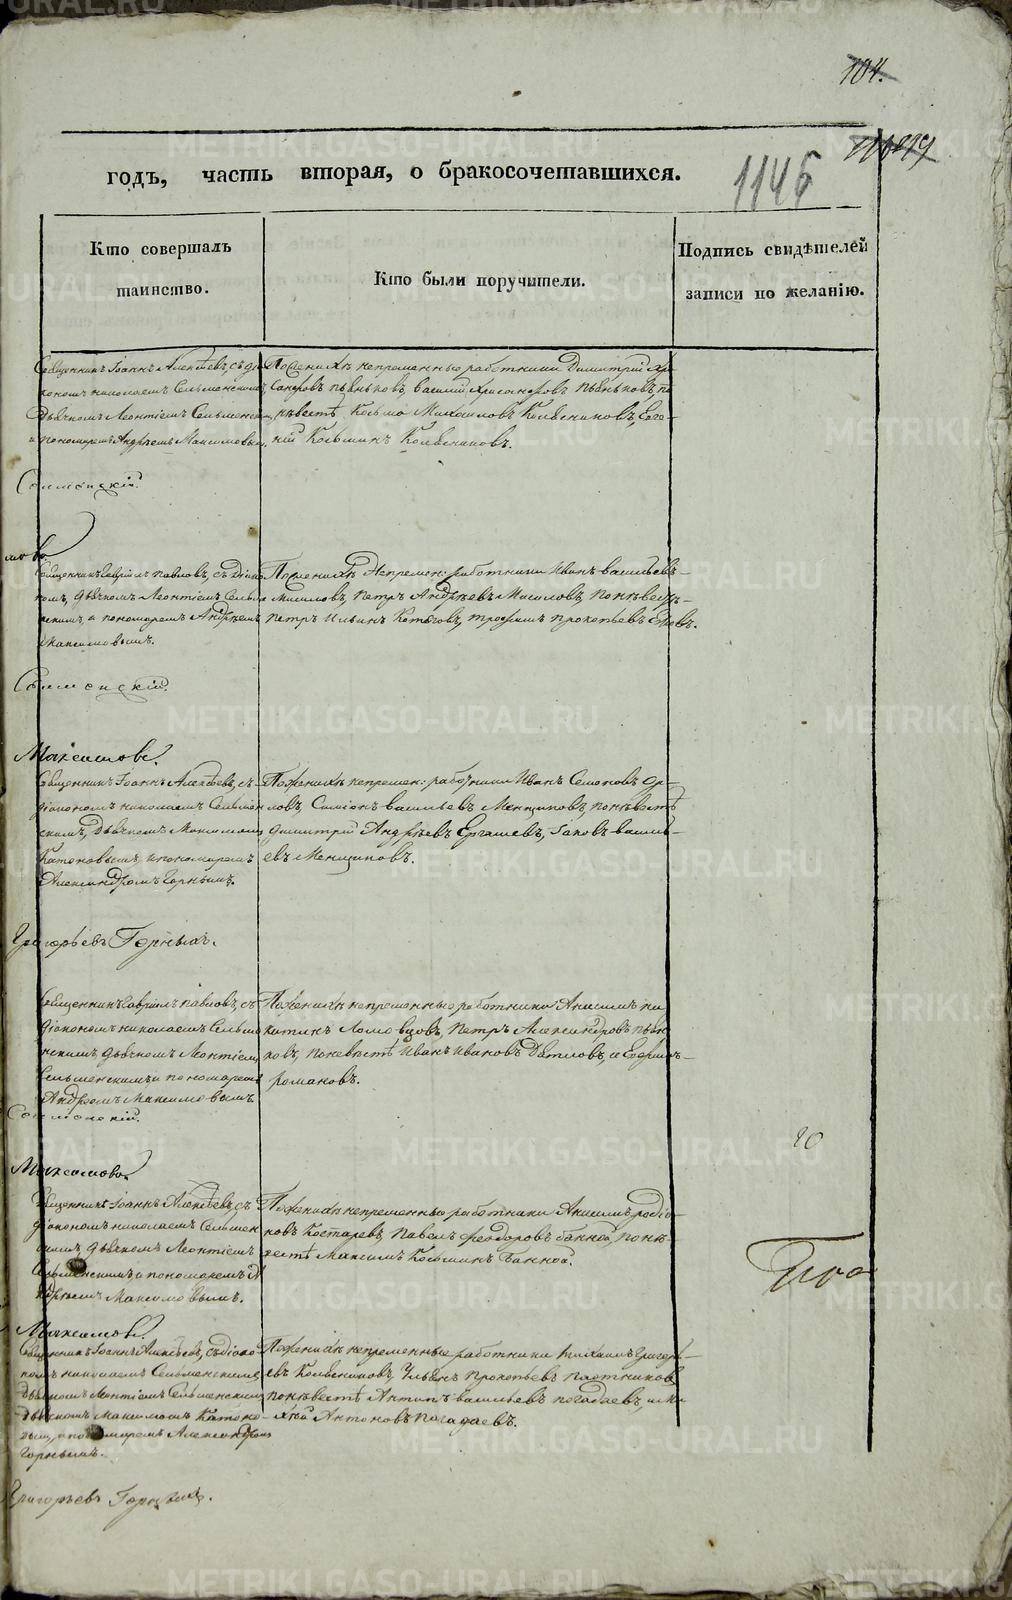 104.
годъ, часть вторая, о бракосочетавшихся.
1146
Кто совершалъ таинство.
Кто были поручители.
Подпись свидѣтелей записи по желанію.
Священникъ Іоаннъ Алексѣевъ, съ діа-
кономъ Николаемъ Сельменскимъ,
Дьячкомъ Леонтіемъ Сельменскимъ,
и пономаремъ Андреемъ Максимовымъ
По женихѣ непременные работники Димитрій Хри-
сановъ Пьянковъ, Василій Хрисанфовъ Пьянковъ, по
невѣстѣ Косьма Михаиловъ Колѣсниковъ, Евге-
ній Косминъ Колѣсниковъ.
Священникъ Гавріилъ Павловъ, съ Діако-
номъ, дьячкомъ Леонтіемъ Сельме-
нскимъ, и пономаремъ Андреемъ
Максимовымъ.
По женихѣ Непремен: работники Иванъ Васильевъ
Мисиловъ, Петръ Андреевъ Мисиловъ, по невѣстѣ
Петръ Ильинъ Котеговъ, Трофимъ Прокопьевъ
Максимовъ.
Священникъ Іоаннъ Алексѣевъ, съ
діакономъ Николаемъ Сельмен-
скимъ, Дьячкомъ Максимомъ
Катоновымъ, и пономаремъ
Александромъ Горнымъ.
По женихѣ непремен: работники Иванъ Семеновъ Ор-
ловъ, Симіонъ Васильевъ Менщиковъ, по невѣстѣ
Димитрій Андреевъ Ергашевъ, Іаковъ Василь-
евъ Менщиковъ.
Григорьевъ Горныхъ.
Священникъ Гавріилъ Павловъ, съ
діакономъ Николаемъ Сельме-
нскимъ, дьячкомъ Леонтіемъ
Сельменскимъ и пономаремъ
Андреемъ Максимовымъ
По женихѣ непременные работники Анисимъ Ни-
китинъ Ломовцовъ, Петръ Александровъ Пьян-
ковъ, по невѣстѣ Иванъ Ивановъ Дятловъ, и Ефимъ
Романовъ.
20
Максимовъ
Священникъ Іоаннъ Алексѣевъ, съ
діакономъ Николаемъ Сельмен-
скимъ, дьячкомъ Леонтіемъ
Сельменскимъ и пономаремъ Ан-
дреемъ Максимовымъ.
По женихѣ непременные работники Анисимъ Родіо-
новъ Костаревъ, Павелъ Феодоровъ Банной, по не-
вѣстѣ Максимъ Косьминъ Банной.
Максимовъ.
Священникъ Іоаннъ Алексѣевъ, съ діако-
номъ Николаемъ Сельменскимъ,
Дьячкомъ Леонтіемъ Сельменскимъ
дьячкомъ Максимомъ Катоно-
вымъ, и пономаремъ Александромъ
Горнымъ.
По женихѣ непременные работники Михаилъ Григорь-
евъ Колѣсниковъ, Ульянъ Прокопьевъ Плотниковъ
по невѣстѣ Антипъ Васильевъ Погадаевъ, и Ми-
хѣй Антоновъ Погадаевъ.
Григорьевъ Горныхъ.
METRIKI.GASO-URAL.RU